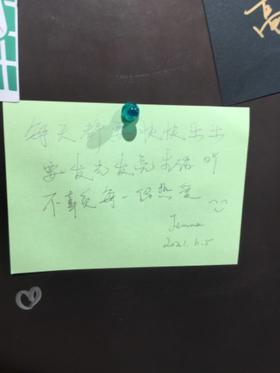 高
每天都要快快乐乐
要发光发亮
不辜负每一份热爱
Jenna
2021.6.5